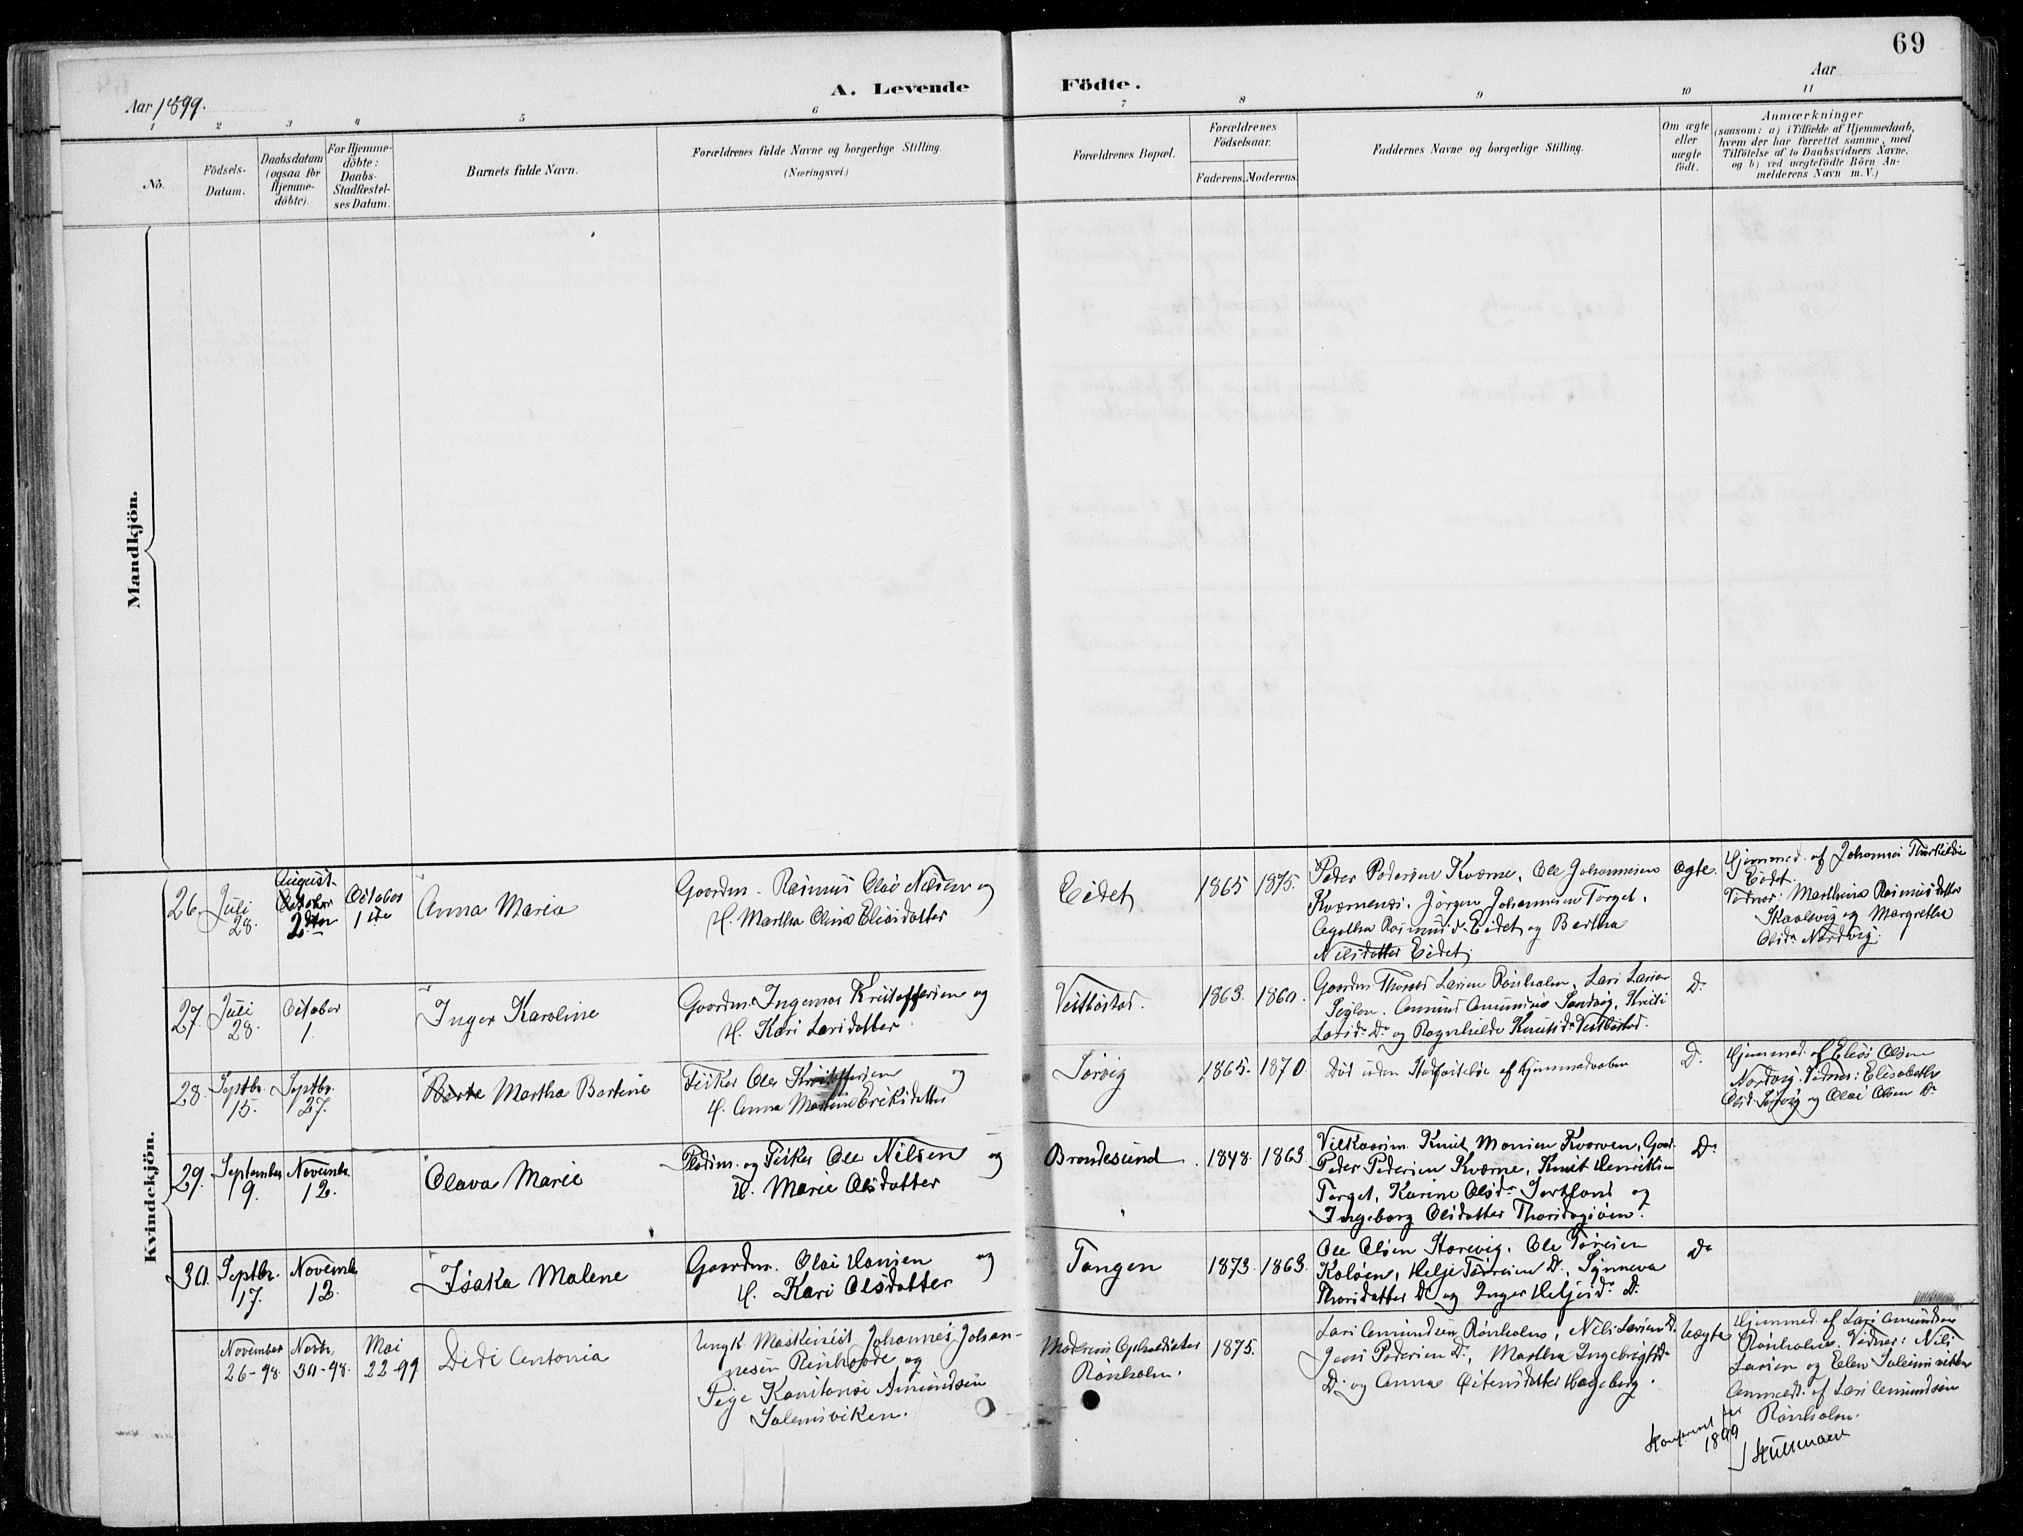 69
A. Levende Födte.
Aar 1899.
Aar
1 2 3 4 5 6 7 8 9 10 11
No.
Födsels-
Datum.
Daabsdatum
(ogsaa för
Hjemme-
döbte).
For Hjemme-
döbte:
Daabs-
Stadfæstel-
ses Datum.
Barnets fulde Navn.
Forældrenes fulde Navne og borgerlige Stilling.
(Næringsvei.)
Forældrenes Bopæl.
Forældrenes
Födselsaar.
Faderens. Moderens.
Faddernes Navne og borgerlige Stilling.
Om ægte
eller
uægte
födt.
Anmærkninger
(saasom: a) i Tilfælde af Hjemmedaab,
hvem der har forrettet samme, med
Tilföielse af to Daabsvidners Navne.
og b) ved uægtefödte Börn An-
melderens Navn m. V.)
Mandkjön.
Kvindekjön.
26. Juli
28.
August
October
2den
October
1ste
Anna Maria
Gaardm. Rasmus Olai Nilsen og
H. Martha Olina Eliasdatter
Eidet
1865 1875.
Peder Pedersen Kværne, Ole Johannesen
Kværnenes, Jörgen Johannesen Torget,
Agatha Rasmusd. Eidet og Bertha
Nilsdatter Eidet.
Ægte.
Hjemmed. af Johannes
Eidet.
Vidner: Marthina Rasmusdatter
og Margrethe
Olsdr Nordvig.
27. Juli
28.
October
1.
Inger Karoline
Gaardm. Ingemar Kristoffersen og
H. Kari Larsdatter
Vestböstad.
1863. 1860.
Gaardm. Larsen Rönholm, Lars Larsen
Amund Amundsen Sandvig,
Larsdr Do og Ragnhilde Knutsdr Vestböstad.
Do
28. Septbr.
15.
Septbr.
27.
Martha Bertine
Fisker Ole Kristoffersen og
H. Anna Martine Eriksdatter
Sörvig
1865. 1870
Död uden Stadfæstelse af Hjemmedaaben
D.
Hjemmed. af Elias Olsen
Nordvig. Vidner: Elisabeth
Olsd. Sörvig og Olai Olsen Do
29. September
19.
Novembr.
12.
Olava Marie
og Fisker Ole Nilsen og
H. Marie Olsdatter
Brandesund.
1848. 1863
Knut Monsen Kvarven, Gaardm.
Peder Pedersen Kværne, Knut Henriksen
Torget, Karine Olsdr Sortland og
Ingeborg Olsdatter
Do
30. Septbr.
17.
Novemb.
12.
Isaka Malene
Gaardm. Olai Hansen og
H. Kari Olsdatter
Tangen
1873. 1863.
Ole Olsen Storevig, Ole Toresen
Kolöen, Helje Toresen Do, Synneva
Thorsdatter Do og Inger Heljesdr Do
Do
November
26-98.
Novbr.
30-98.
Mai
22-99
Didi Antonia
Ungk. Maskinist Johannes Johan-
nesen og
Pige Amundsen
Salemsviken.
Moderens Opholdssted
Rönholm.
1875.
Lars Amundsen Rönholm, Nils Larsen D.
Jens Pedersen Do, Martha Ingebrigtsdr
D. og Anna Hageberg.
Uægte
Hjemmed. af Lars Amundsen
Rönholm. Vidner: Nils
Larsen og Elen Salemsviken
Anmeldt af Lars Amundsen
Rönholm.
1899